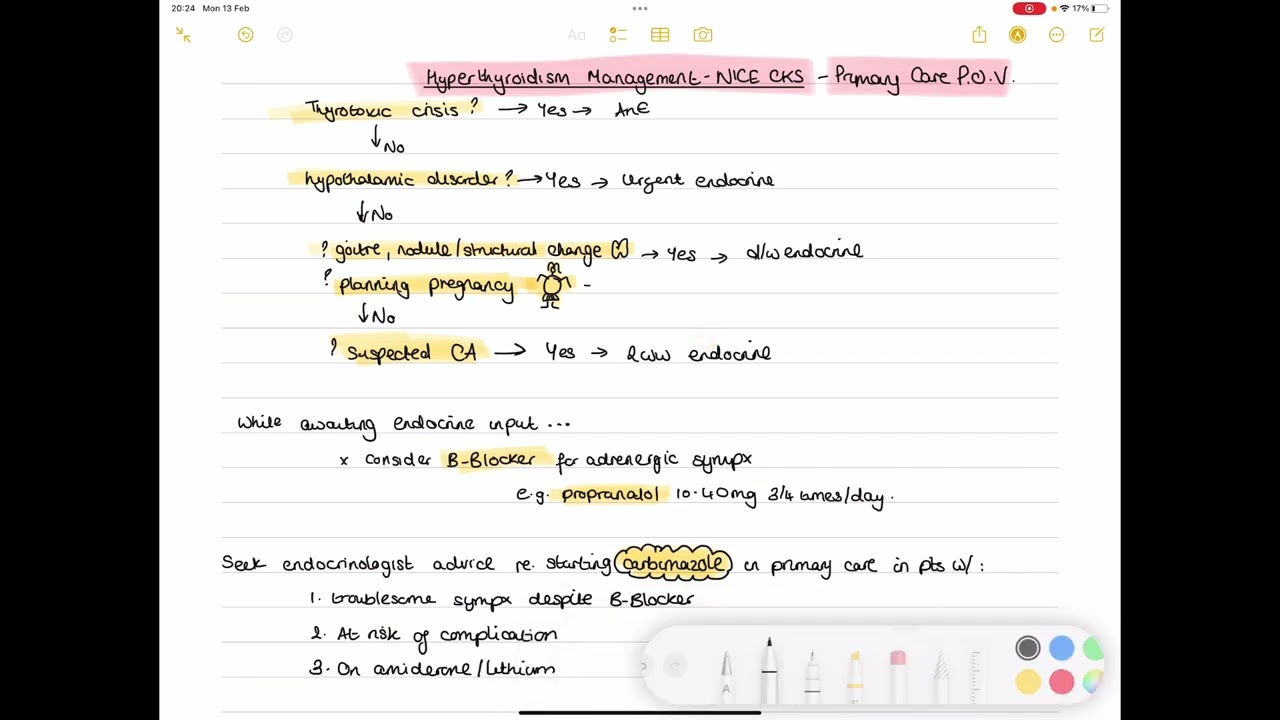 20:24 Mon 13 Feb
17%
Aa
Hyperthyroidism Management - NICE CKS - Primary Care P.O.V.
Thyrotoxic crisis? → Yes → AnE
↓ No
hypothalamic disorder? → Yes → Urgent endocrine
↓ No
? goitre, nodule/structural change → Yes → d/w endocrine
? planning pregnancy -
↓ No
? Suspected CA → Yes → 2ww endocrine
While awaiting endocrine input ...
x Consider B-Blocker for adrenergic sympx
e.g. propranalol 10-40mg 3/4 times/day.
Seek endocrinologist advice re. starting carbimazole in primary care in pts w/:
1. troublesome sympx despite B-Blocker
2. At risk of complication
3. On amiderone/lithium
A